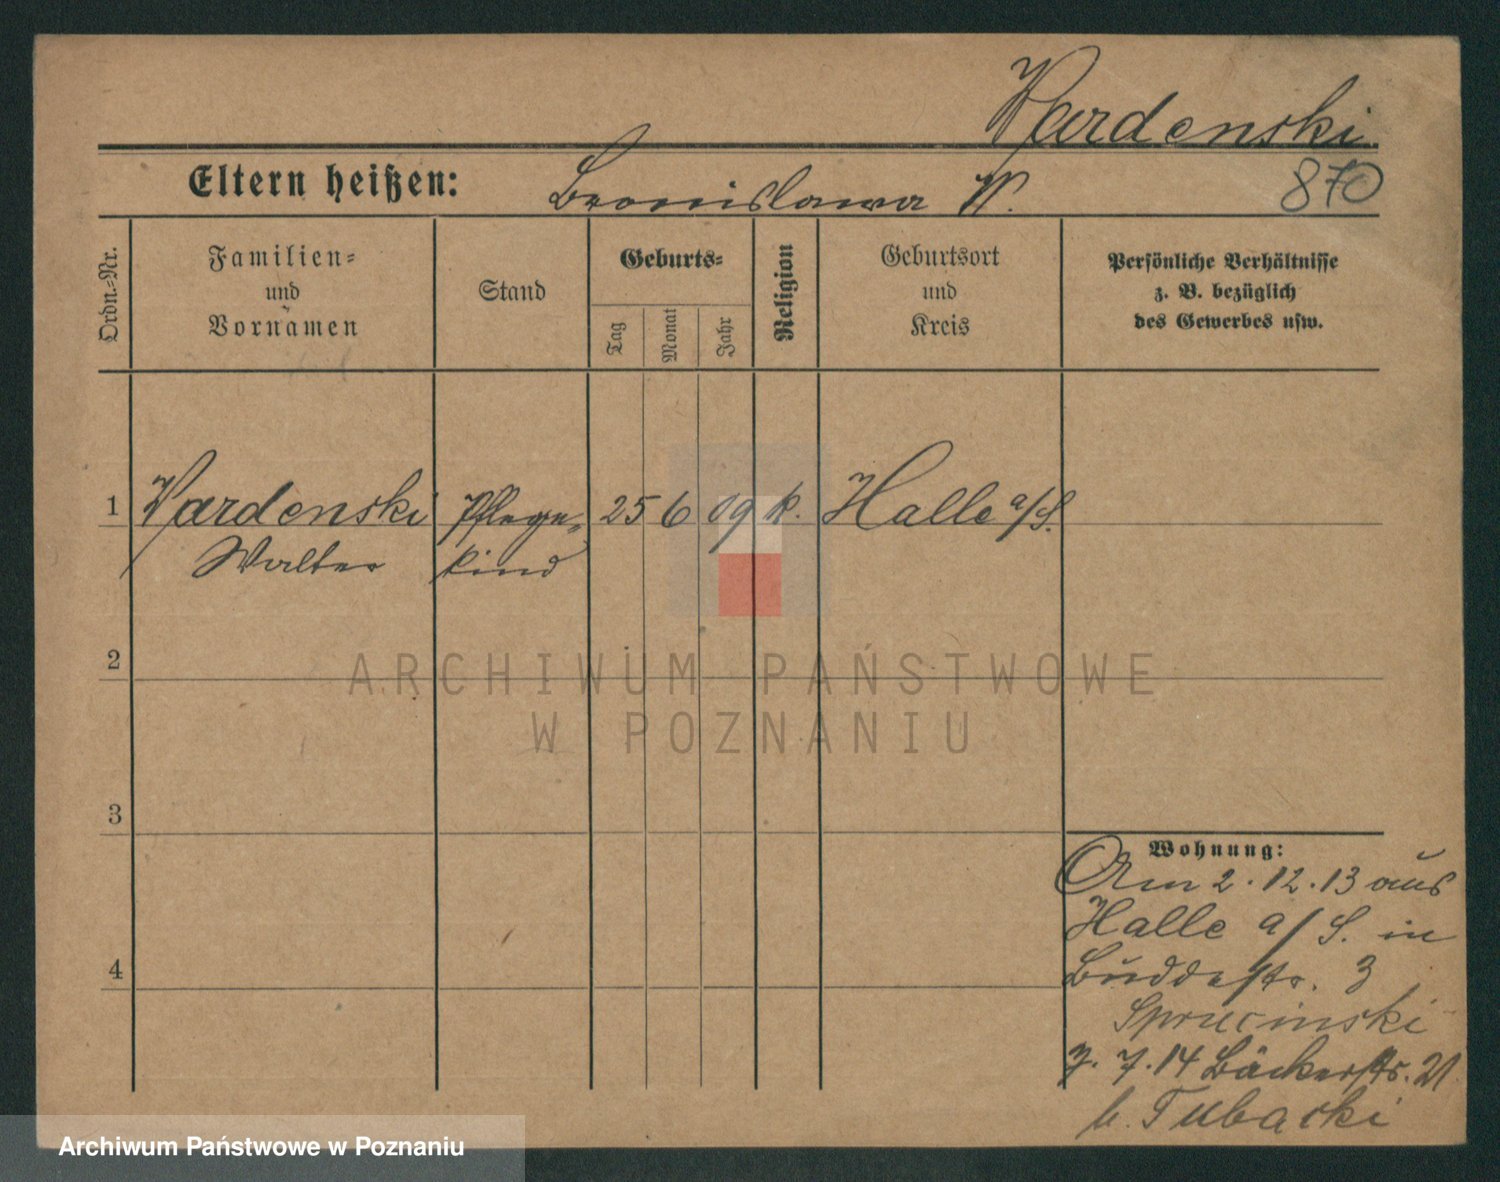 Wardenski
Eltern heißen: Bronislawa W.
870
Ordn.=Nr.
Familien=
und
Vornamen
Stand
Geburts=
Tag
Monat
Jahr
Religion
Geburtsort
und
Kreis
Persönliche Verhältnisse
z. B. bezüglich
des Gewerbes usw.
1 Wardenski Pflege= 25 6 09 k. Halle a/S.
Walter kind
2
ARCHIWUM PAŃSTWOWE
W POZNANIU
3
Wohnung:
Am 2.12.13 aus
Halle a/S. in
4
Buddestr. 3
7.14 Bäckerstr. 21
b. Tubacki
Archiwum Państwowe w Poznaniu